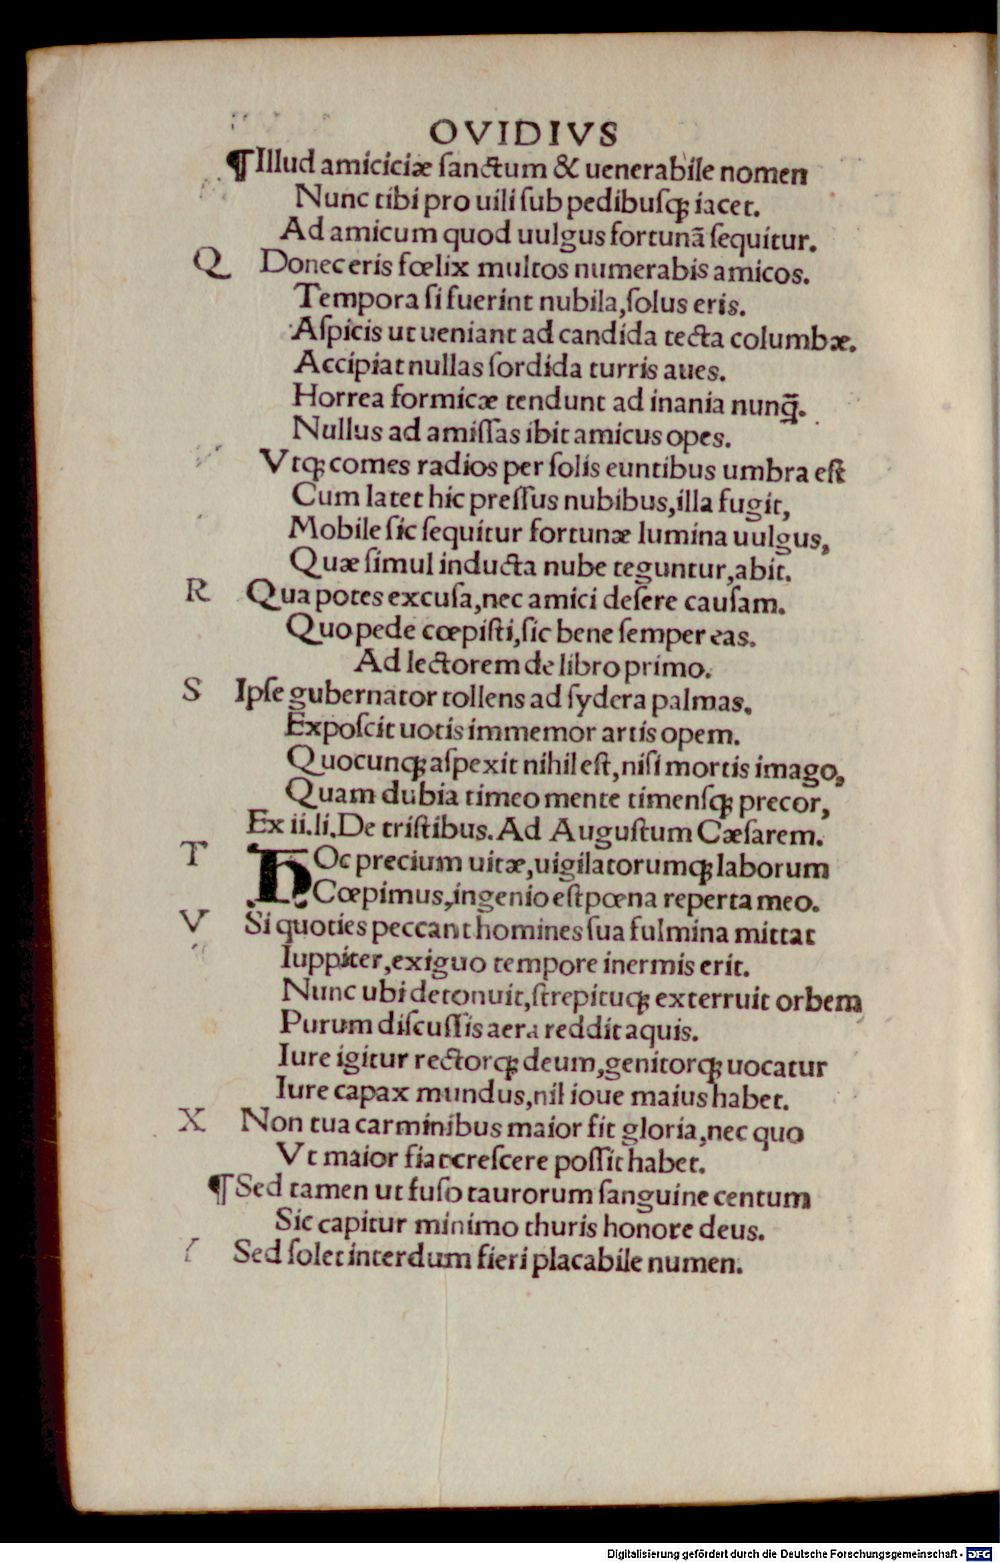 OVIDIVS
¶Illud amiciciæ ſanctum & uenerabile nomen
Nunc tibi pro uili ſub pedibuſqꝫ iacet.
Ad amicum quod uulgus fortunã ſequitur.
Q Donec eris fœlix multos numerabis amicos.
Tempora ſi fuerint nubila,ſolus eris.
Aſpicis ut ueniant ad candida tecta columbæ.
Accipiat nullas ſordida turris aues.
Horrea formicæ tendunt ad inania nunq̃.
Nullus ad amiſſas ibit amicus opes.
Vtqꝫ comes radios per ſolis euntibus umbra eſt
Cum latet hic preſſus nubibus,illa fugit,
Mobile ſic ſequitur fortunæ lumina uulgus,
Quæ ſimul inducta nube teguntur,abit.
R Qua potes excuſa,nec amici deſere cauſam.
Quo pede cœpiſti,ſic bene ſemper eas.
Ad lectorem de libro primo.
S Ipſe gubernator tollens ad ſydera palmas.
Expoſcit uotis immemor artis opem.
Quocunqꝫ aſpexit nihil eſt,niſi mortis imago,
Quam dubia timeo mente timenſqꝫ precor,
Ex ii.li.De triſtibus.Ad Auguſtum Cæſarem.
T HOc precium uitæ,uigilatorumqꝫ laborum
Cœpimus,ingenio eſt pœna reperta meo.
V Si quoties peccant homines ſua fulmina mittat
Iuppiter,exiguo tempore inermis erit.
Nunc ubi detonuit,ſtrepituqꝫ exterruit orbem
Purum diſcuſſis aera reddit aquis.
Iure igitur rectorqꝫ deum,genitorqꝫ uocatur
Iure capax mundus,nil ioue maius habet.
X Non tua carminibus maior fit gloria,nec quo
Vt maior fiat creſcere poſſit habet.
¶Sed tamen ut fuſo taurorum ſanguine centum
Sic capitur minimo thuris honore deus.
Sed ſolet interdum fieri placabile numen.
Digitalisierung gefördert durch die Deutsche Forschungsgemeinschaft - DFG